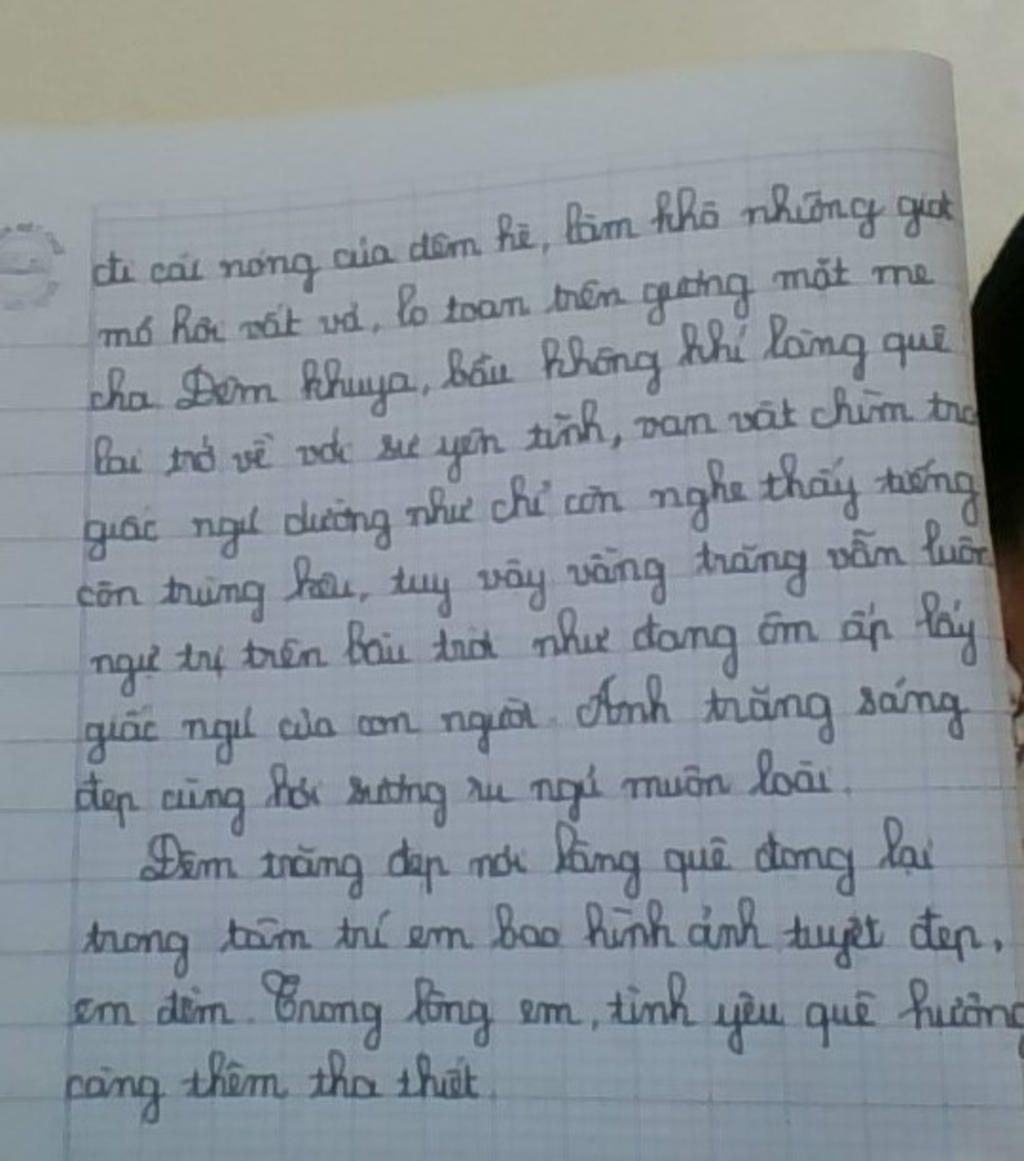 đi cái nóng của đêm hè, làm khô những giọt
mồ hôi vất vả, lo toan trên gương mặt mẹ
cha. Đêm khuya, bầu không khí làng quê
lại trở về với sự yên tĩnh, vạn vật chìm tro
giấc ngủ dường như chỉ còn nghe thấy tiếng
côn trùng kêu, tuy vậy vầng trăng vẫn luôn
ngự trị trên bầu trời như đang ôm ấp lấy
giấc ngủ của con người. Ánh trăng sáng
đẹp cùng hơi sương ru ngủ muôn loài.
Đêm trăng đẹp nơi làng quê đọng lại
trong tâm trí em bao hình ảnh tuyệt đẹp,
êm đềm. Trong lòng em, tình yêu quê hương
càng thêm tha thiết.